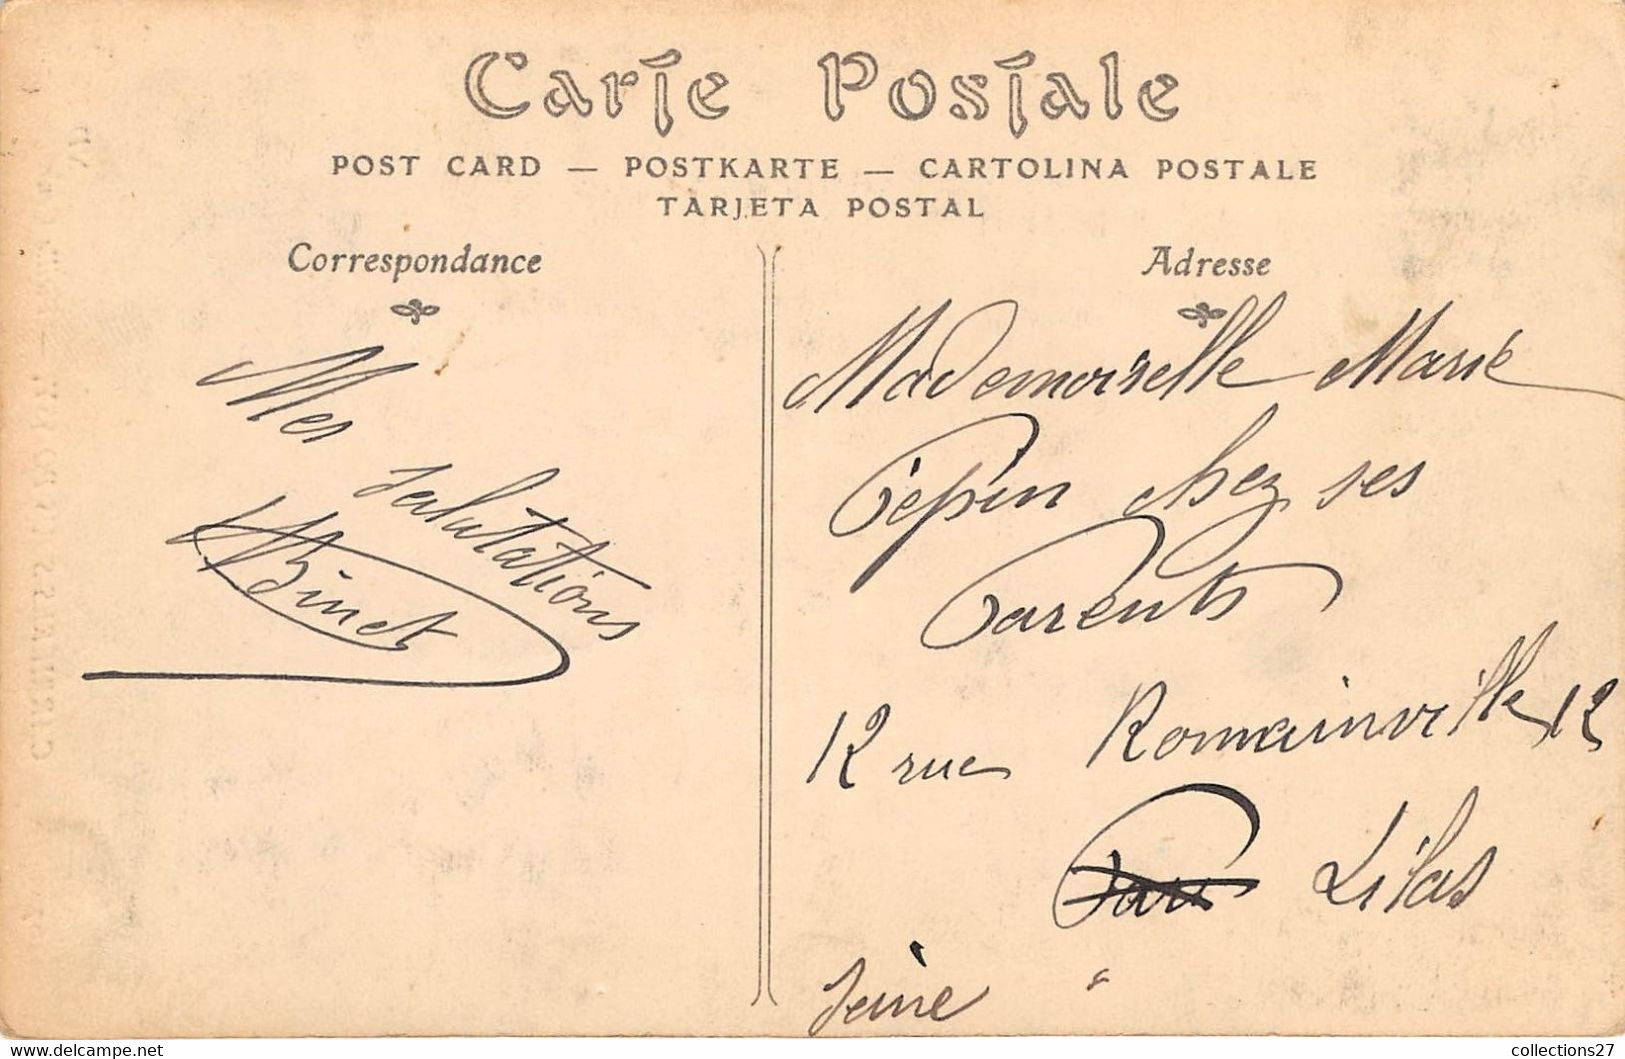 Carte Postale
POST CARD — POSTKARTE — CARTOLINA POSTALE
TARJETA POSTAL
Correspondance
Mes
salutations
Binet
Adresse
Mademoiselle Marie
Pépin chez ses
Parents
12 rue Romainville 12
Paris Lilas
Seine
collections27